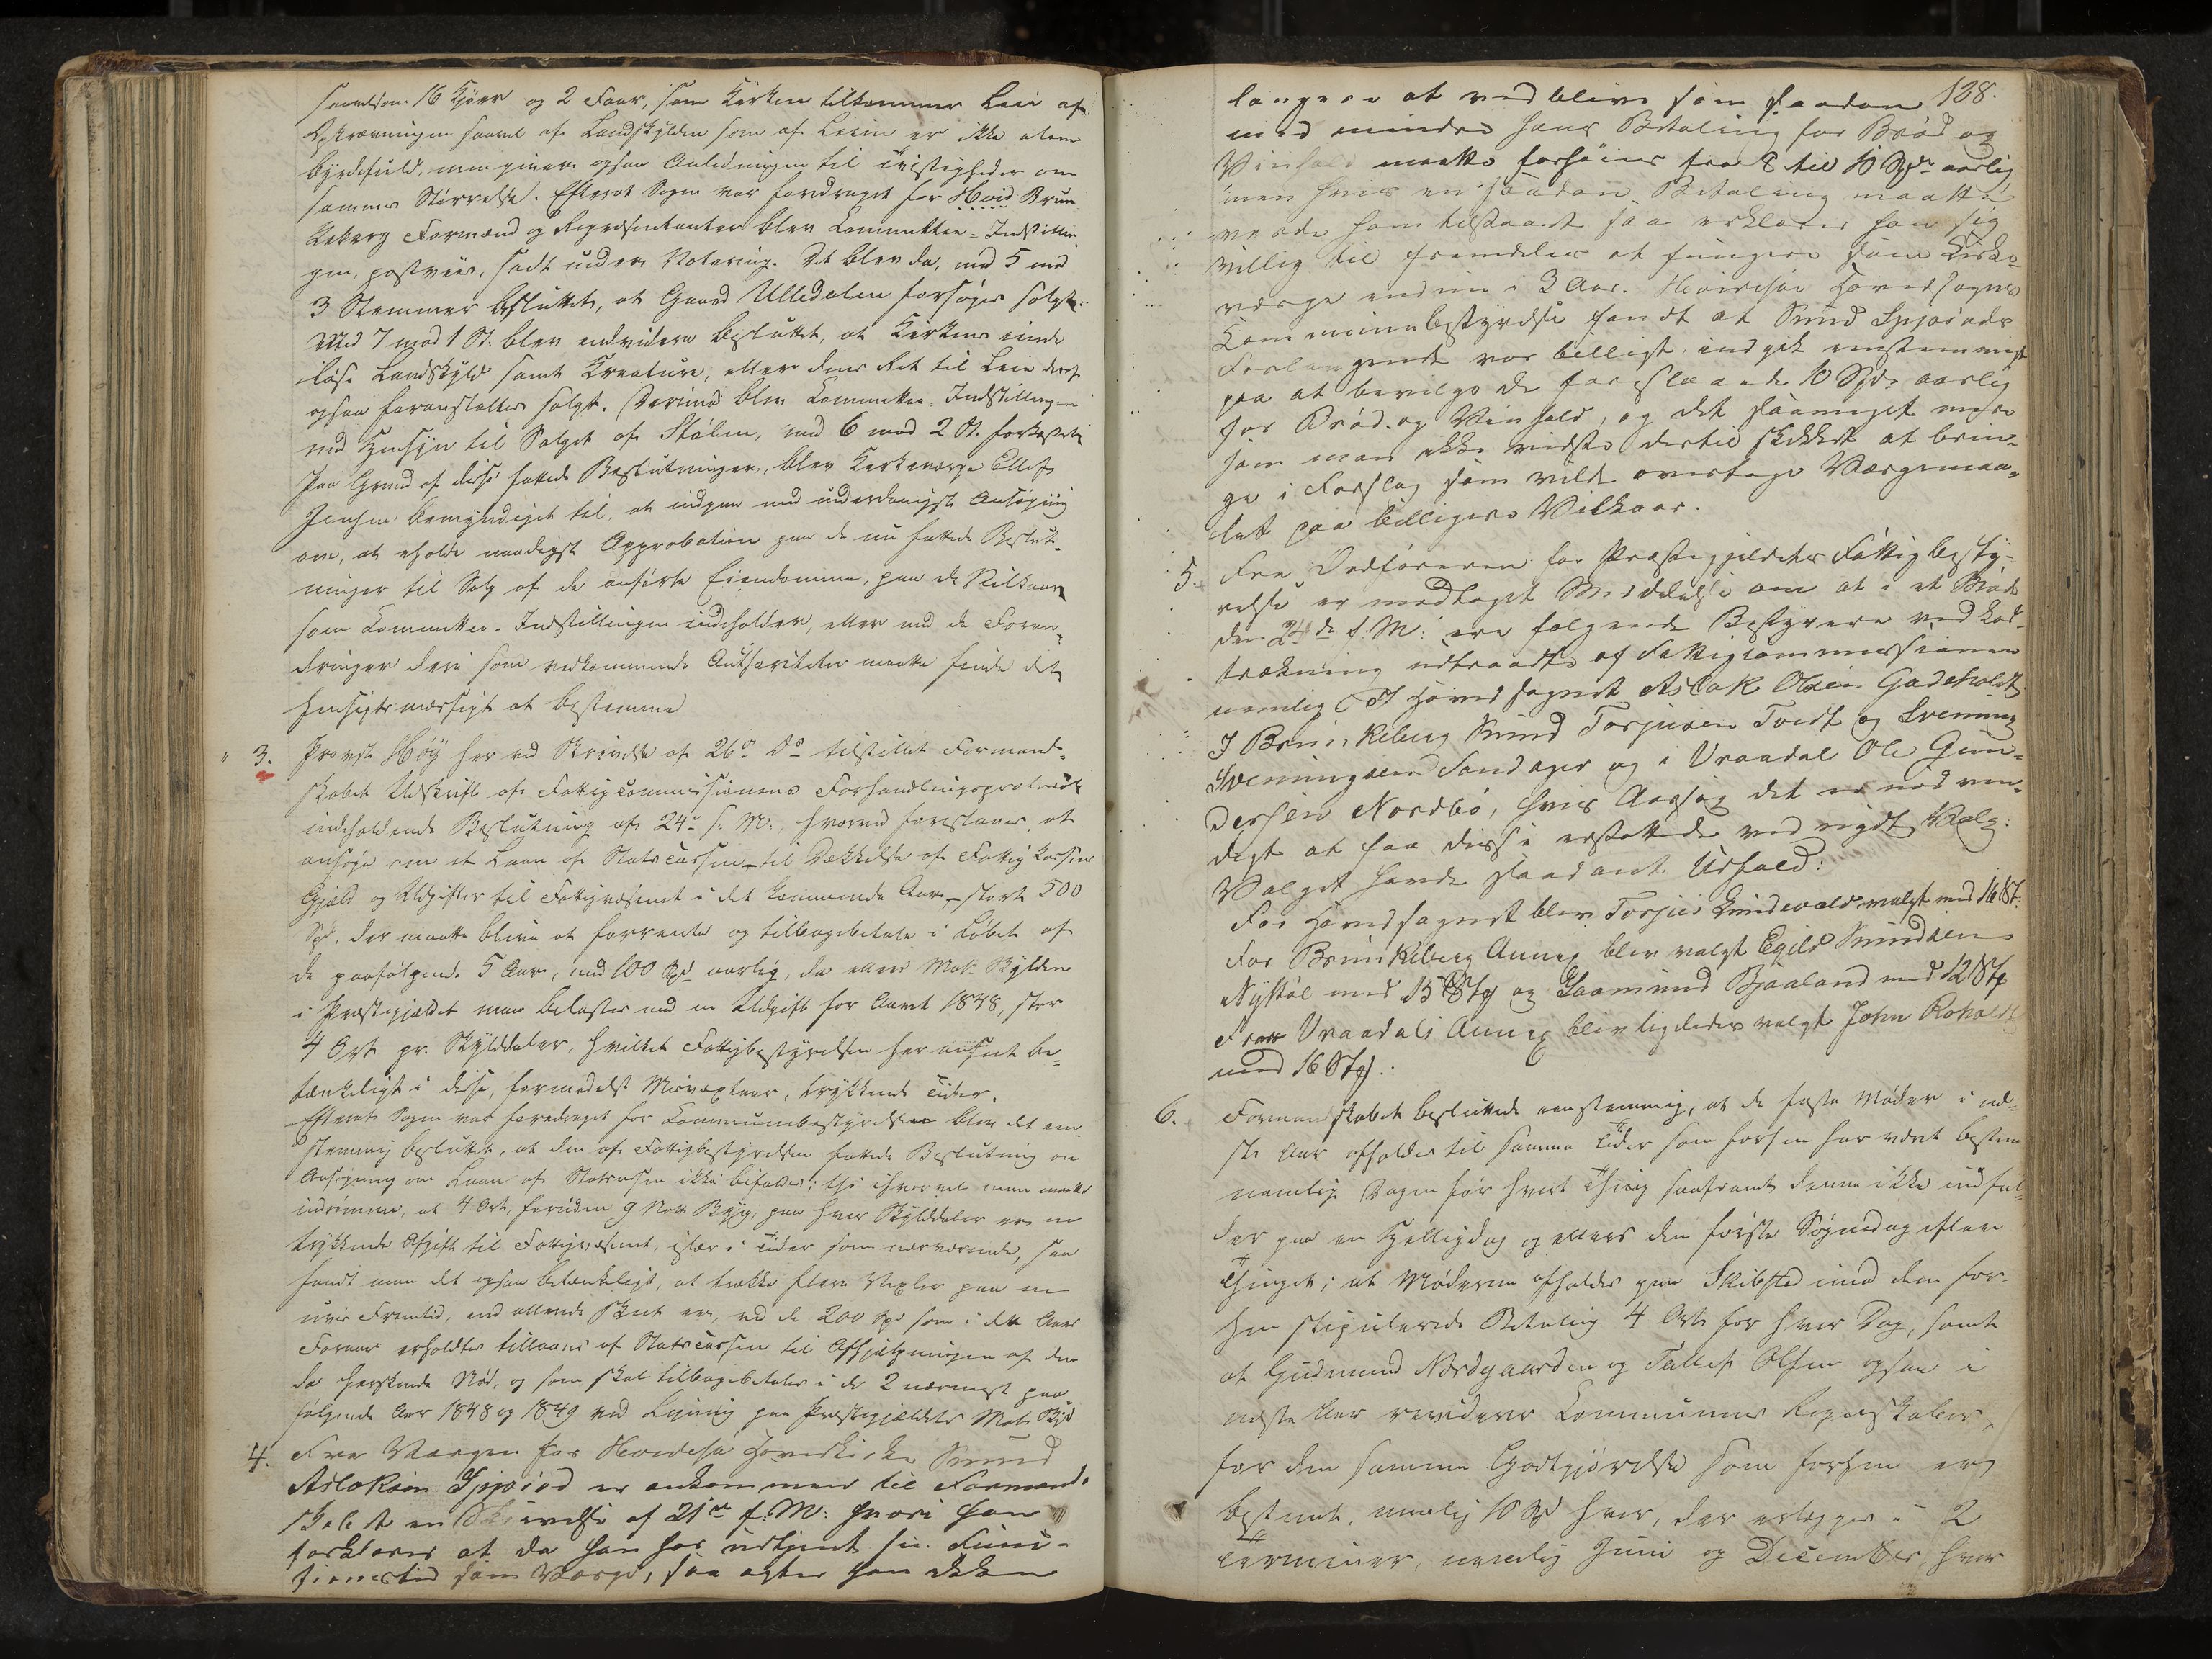 saavelsom 16 Kjøer og 2 Faar, som Kirken tilkommer Leie af.
Opkrævningen saavel af Landskylden som af Leien er ikke alene
byrdefuld, men giver ogsaa Anledningen til Tvistigheder om
sammes Størrelse. Efterat Sagen var foredraget for Hvid Brun
keberg Formænd og Repræsentanter blev Committee-Indstillin
gen, postviis, sadt under Votering. Det blev da, med 5 mod
3 Stemmer besluttet, at Gaard Ulledalen forsøges solgt.
Med 7 mod 1 St. blev endvidere besluttet, at Kirkens uind
løste Landskyld samt Kreature, eller dens Ret til Leie deraf
ogsaa foranstaltes solgt. Derimod blev Committee-Indstillingen
med Hensyn til Salget af Stølen, med 6 mod 2 St. forkastet
Paa Grund af disse fattede Beslutninger, blev Kirkeværge Ellef
Jensen bemyndiget til, at indgaae med underdanigst Ansøgning
om, at erholde naadigst Approbation paa de nu fattede Beslut-
ninger til Salg af de anførte Eiendomme, paa de Vilkaar
som Committee-Indstillingen indeholder, eller med de Foran-
dringer deri som vedkommende Authoriteter maatte finde det
hensigtsmæssigt at bestemme
3. Provst Höÿ har ved Skrivelse af 26de ds tilstillet Formand-
skabet Udskrift af Fattigcommissionens Forhandlingsprotocol
indeholdende Beslutning af 24de f. M., hvorved foreslaaes, at
ansøge om et Laan af Statscassen - til Dækkelse af Fattigkassens
Gjæld og Udgifter til Fattigvæsenet i det kommende Aar, - stort 500
Spd, der maatte blive at forrente og tilbagebetale i Løbet af
de paafølgende 5 Aar, med 100 Spd aarlig, da ellers Mat. Skylden
i Præstegjældet maa belastes med en Udgift for Aaret 1848, stor
4 Ort pr. Skylddaler, hvilket Fattigbestyrelsen har anseet be-
tænkeligt i disse, formedelst Misvæxtaar, trykkende Tider.
Efterat Sagen var foredraget for Communebestyrelsen blev det een-
stemmig besluttet, at den af Fattigbestyrelsen fattede Beslutning om
Ansøgning om Laan af Statscassen ikke bifaldes; thi ihvorvel man maatte
indrømme, at 4 Ort, foruden 9 Mark Byg, paa hver Skylddaler er en
trykkende Afgift til Fattigvæsenet, især i Tider som nærværende, saa
fandt man det ogsaa betænkeligt, at trække flere Vexler paa en
uvis Fremtid, end allerede skeet er, ved de 200 Spd som i dette Aars
Foraar erholdtes tillaans af Statscassen til Afhjælpningen af den
da herskende Nød, og som skal tilbagebetales i de 2 nærmest paa
følgende Aar 1848 og 1849 ved Ligning paa Præstegjældets Mat. Skyld
4. Fra Værgen for Hvidesø Hovedkirke Knud
Aslaksøn Spjøtsod er ankommen til Formand-
skabet en Skrivelse af 21de f. M: hvori han
forklarer at da han har udtjent sin Func-
tionstid som Værge, saa agter han ikke
længere at vedblive som saadan 138.
med mindre hans Betaling for Brød og
Vinhold maatte forhøies fra 8 til 10 Spdr aarlig
men hvis en saadan Betaling maatte
vorde ham tilstaaet saa erklærer han sig
villig til fremdeles at fungere som Kirke-
værge endnu i 3 Aar. Hvidesøe Hovedsogns
Kommunebestyrelse fandt at Knud Spjøtsods
Forlangende var billigt, indgik eenstemmigt
paa at bevilge de foreslaaede 10 Spdr aarlig
for Brød- og Vinhold, og det saameget mere
som man ikke vidste dertil skikket at brin-
ge i Forslag som vilde overtage Værgemaa-
let paa billigere Vilkaar.
5. Fra Ordføreren for Præstegjeldets Fattigbesty-
relse er modtaget Meddelelse om at i et Møde
den 24de f. M: ere følgende Bestyrere ved Lod-
trækning udtraadte af Fattigcommissionen
nemlig: I Hovedsognet Aslak Olsen Gadeholdt
I Brunkeberg Knud Torjusen Tvedt og Svenning
Svenningsen Sondager og i Vraadal Ole Gun-
dersen Nordbö, hvis Aarsag det er nødven-
digt at faa disse erstattede ved nyt Valg.
Valget havde saadant Udfald:
For Hovedsognet blev Torjus Kundevald valgt med 16 St.
For Brunkeberg Annex blev valgt Egild Knudsen
Nystøl med 15 Str og Gaamund Bjaaland med 12 Str
For Vraadals Annex blev ligeledes valgt John Roholdt
med 16 Str.
6. Formandskabet besluttede eenstemmig, at de faste Møder i næ-
ste Aar afholdes til samme Tider som forhen har været bestemt
nemlig Dagen før hvert Thing saafremt denne ikke indfal-
der paa en Helligdag og ellers den første Søgnedag efter
Thinget; at Møderne afholdes paa Skibsted imod den for-
hen stipulerede Betaling 4 Ort for hver Dag, samt
at Gudmund Nordgaarden og Tallef Olsen ogsaa i
næste Aar reviderer Communens Regnskaber,
for den samme Godtgjørelse som forhen er
bestemt, nemlig 10 Spd hver, der erlægges i 2
Terminer, nemlig Juni og December, hver